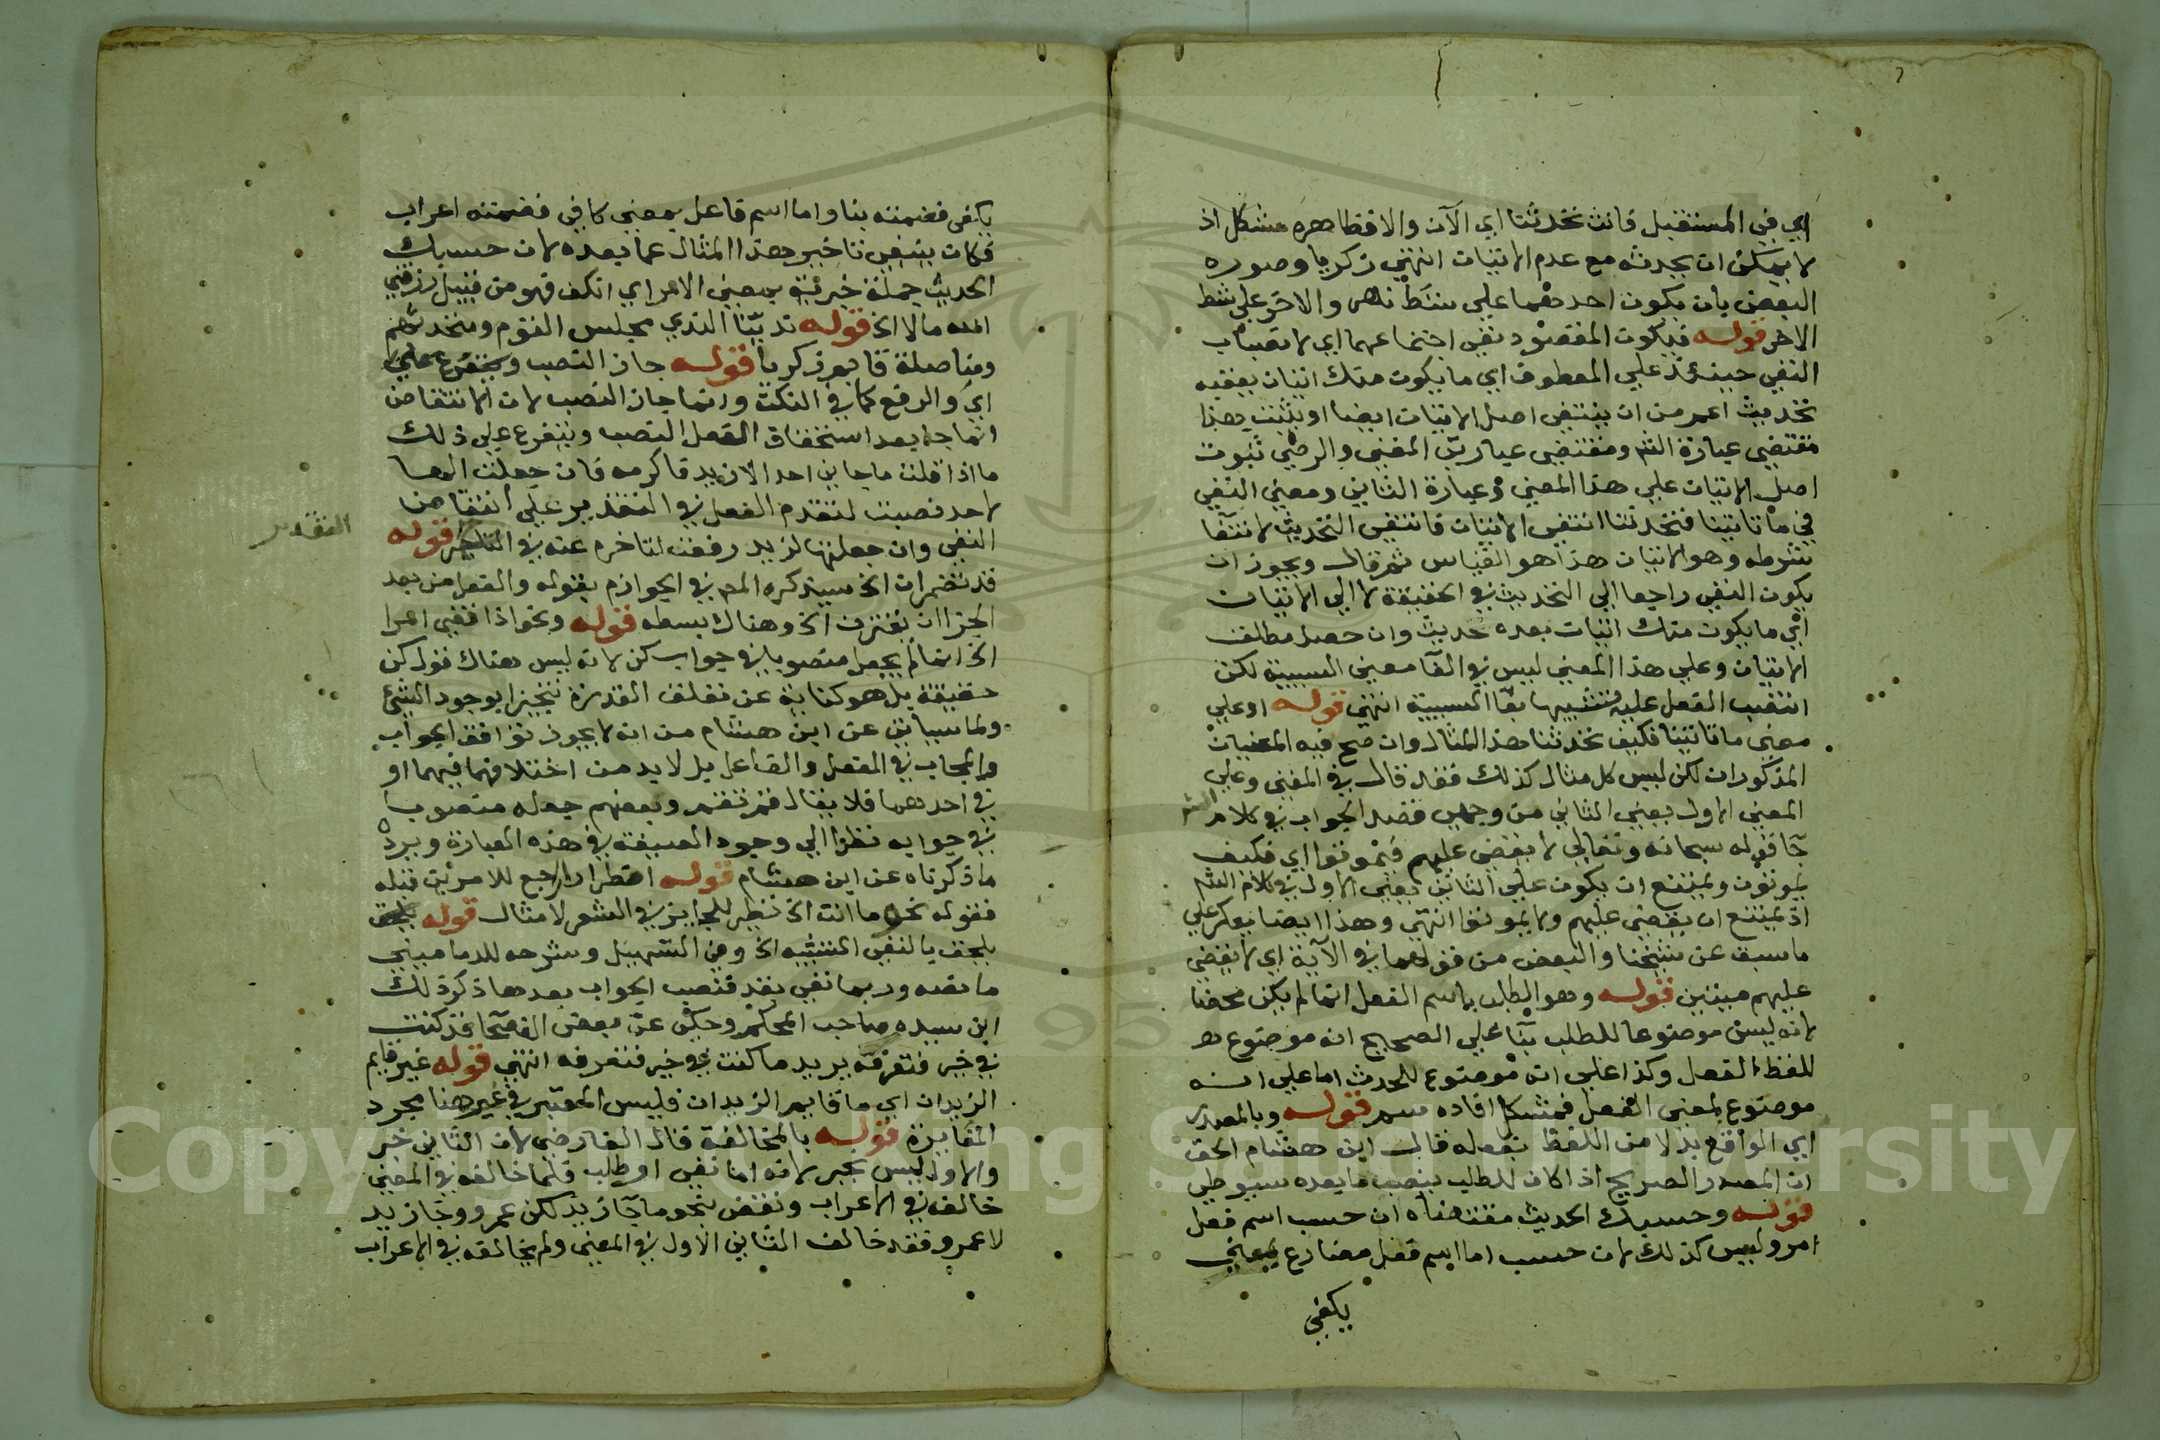 اي في المستقبل فانت تحدثنا اي الآن والافظاهره مشكل اذ
لا يمكن ان يحدثه مع عدم الاتيان انتهي زكريا وصوره
البعض بان يكون احدهما علي شط نهر والاخر علي شط
الاخر قوله فيكون المقصود نفي اجتماعهما اي لانصباب
النفي حينئذ علي المعطوف اي ما يكون منك اتيان يعقبه
تحديث اعم من ان ينتفي اصل الاتيان ايضا او يثبت هذا
مقتضي عبارة الش ومقتضي عبارتي المغني والرضي ثبوت
اصل الاتيان علي هذا المعني وعبارة الثاني ومعني النفي
في ما تاتينا فتحدثنا انتفي الاتيان فانتفي التحديث لانتفا
شرطه وهو الاتيان هذا هو القياس ثم قال ويجوز ان
يكون النفي راجعا الي التحديث في الحقيقة لا الي الاتيان
اي ما يكون منك اتيان بعده تحديث وان حصل مطلق
الاتيان وعلي هذا المعني ليس في الفا معني السببية لكن
انتصب الفعل عليه تشبيها بفا السببية انتهي قوله او علي
معني ما تاتينا فكيف تحدثنا هذا المثال وان صح فيه المعنيان
المذكوران لكن ليس كل مثال كذلك فقد قال في المغني وعلي
المعني الاول يعني الثاني من وجهي قصد الجواب في كلام الش
جا قوله سبحانه وتعالي لا يقضي عليهم فيموتوا اي فكيف
يموتون ويمتنع ان يكون علي الثاني يعني الاول في كلام الش
اذ يمتنع ان يقضي عليهم ولا يموتوا انتهي وهذا ايضا يعكر علي
ما سبق عن شيخنا والبعض من قولهما في الآية اي لا يقضي
عليهم ميتين قوله وهو الطلب باسم الفعل انما لم يكن محضا
لانه ليس موضوعا للطلب بنا علي الصحيح انه موضوع
للفظ الفعل وكذا علي انه موضوع للحدث اما علي انه
موضوع لمعني الفعل فمشكل افاده سم قوله وبالمصدر
اي الواقع بدلا من اللفظ بفعله قال ابن هشام الحق
ان المصدر الصريح اذا كان للطلب ينصب ما بعده سيوطي
قوله وحسبك الحديث مقتضاه ان حسب اسم فعل
امر وليس كذلك لان حسب اما اسم فعل مضارع بمعني
يكفي
يكفي فضمته بنا واما اسم فاعل بمعني كافي فضمته اعراب
فكان ينبغي تاخير هذا المثال عما بعده لان حسبك
الحديث جملة خبرية بمعني الامر اي اكفف فهو من قبيل رزقني
الله مالا الخ قوله ندينا الندي مجلس القوم ومتحدثهم
قوله جاز النصب ويتفرع علي
اي والرفع كما في النكت وانما جاز النصب لان الانتقاض
انما جا بعد استحقاق الفعل النصب ويتفرع علي ذلك
ما اذا قلت ما جاني احد الا زيد فاكرمه فان جعلت الها
لاحد نصبت لتقدم الفعل في التقدير علي انتقاض
النفي وان جعلتها لزيد رفعت لتاخره عنه في التقدير قوله
التقدير
قد تضمر ان الخ سيذكره المص في الجوازم بقوله والفعل من بعد
الجزا ان يقترن الخ وهناك بسطه قوله ونحو اذا قضي امرا
الخ انما لم يجعل منصوبا في جواب كن لانه ليس هناك قول كن
حقيقة بل هو كناية عن تعلق القدرة تنجيزا بوجود الشئ
ولما سياتي عن ابن هشام من انه لا يجوز توافق الجواب
والمجاب في الفعل والفاعل بل لا بد من اختلافهما فيهما او
في احدهما فلا يقال قم تقم وبعضهم جعله منصوبا
في جوابه نظرا الي وجود الصيغة في هذه العبارة ويرده
ما ذكرناه عن ابن هشام قوله اضطرارا راجع للامرين قبله
فقوله نحو ما انت الخ تنظير للجايز في الشعر لا مثال قوله
يلحق بالنفي التشبيه الخ وفي التسهيل وشرحه للدماميني
ما نصه وربما نفي بقد فنصب الجواب بعدها ذكر ذلك
ابن سيده صاحب المحكم وحكي عن بعض الفصحا قد كنت
في خير فتعرفه يريد ما كنت في خير فتعرفه انتهي قوله غير قايم
الزيدان اي ما قايم الزيدان فليس المعتبر في غير هنا مجرد
المغايرة قوله بالمخالفة قال الفارضي لان الثاني خبر
والاول ليس بخبر لانه اما نفي او طلب فلما خالفه في المعني
خالفه في الاعراب ونقض بنحو ما جا زيد لكن عمرو وجا زيد
لا عمرو فقد خالف الثاني الاول في المعني ولم يخالفه في الاعراب
Copyright © King Saud University